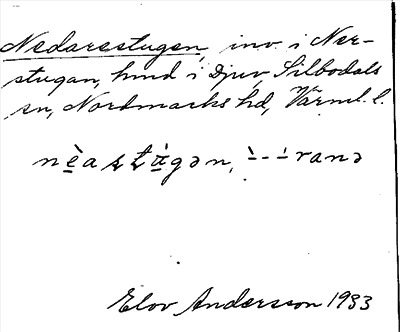 Nedarestugen, inv. i Ner-
stugan, hmd i Djuv, Silbodals
sn, Nordmarks hd, Värml. l.
nèastùgən, ̀--́ranə
Elov Andersson 1933